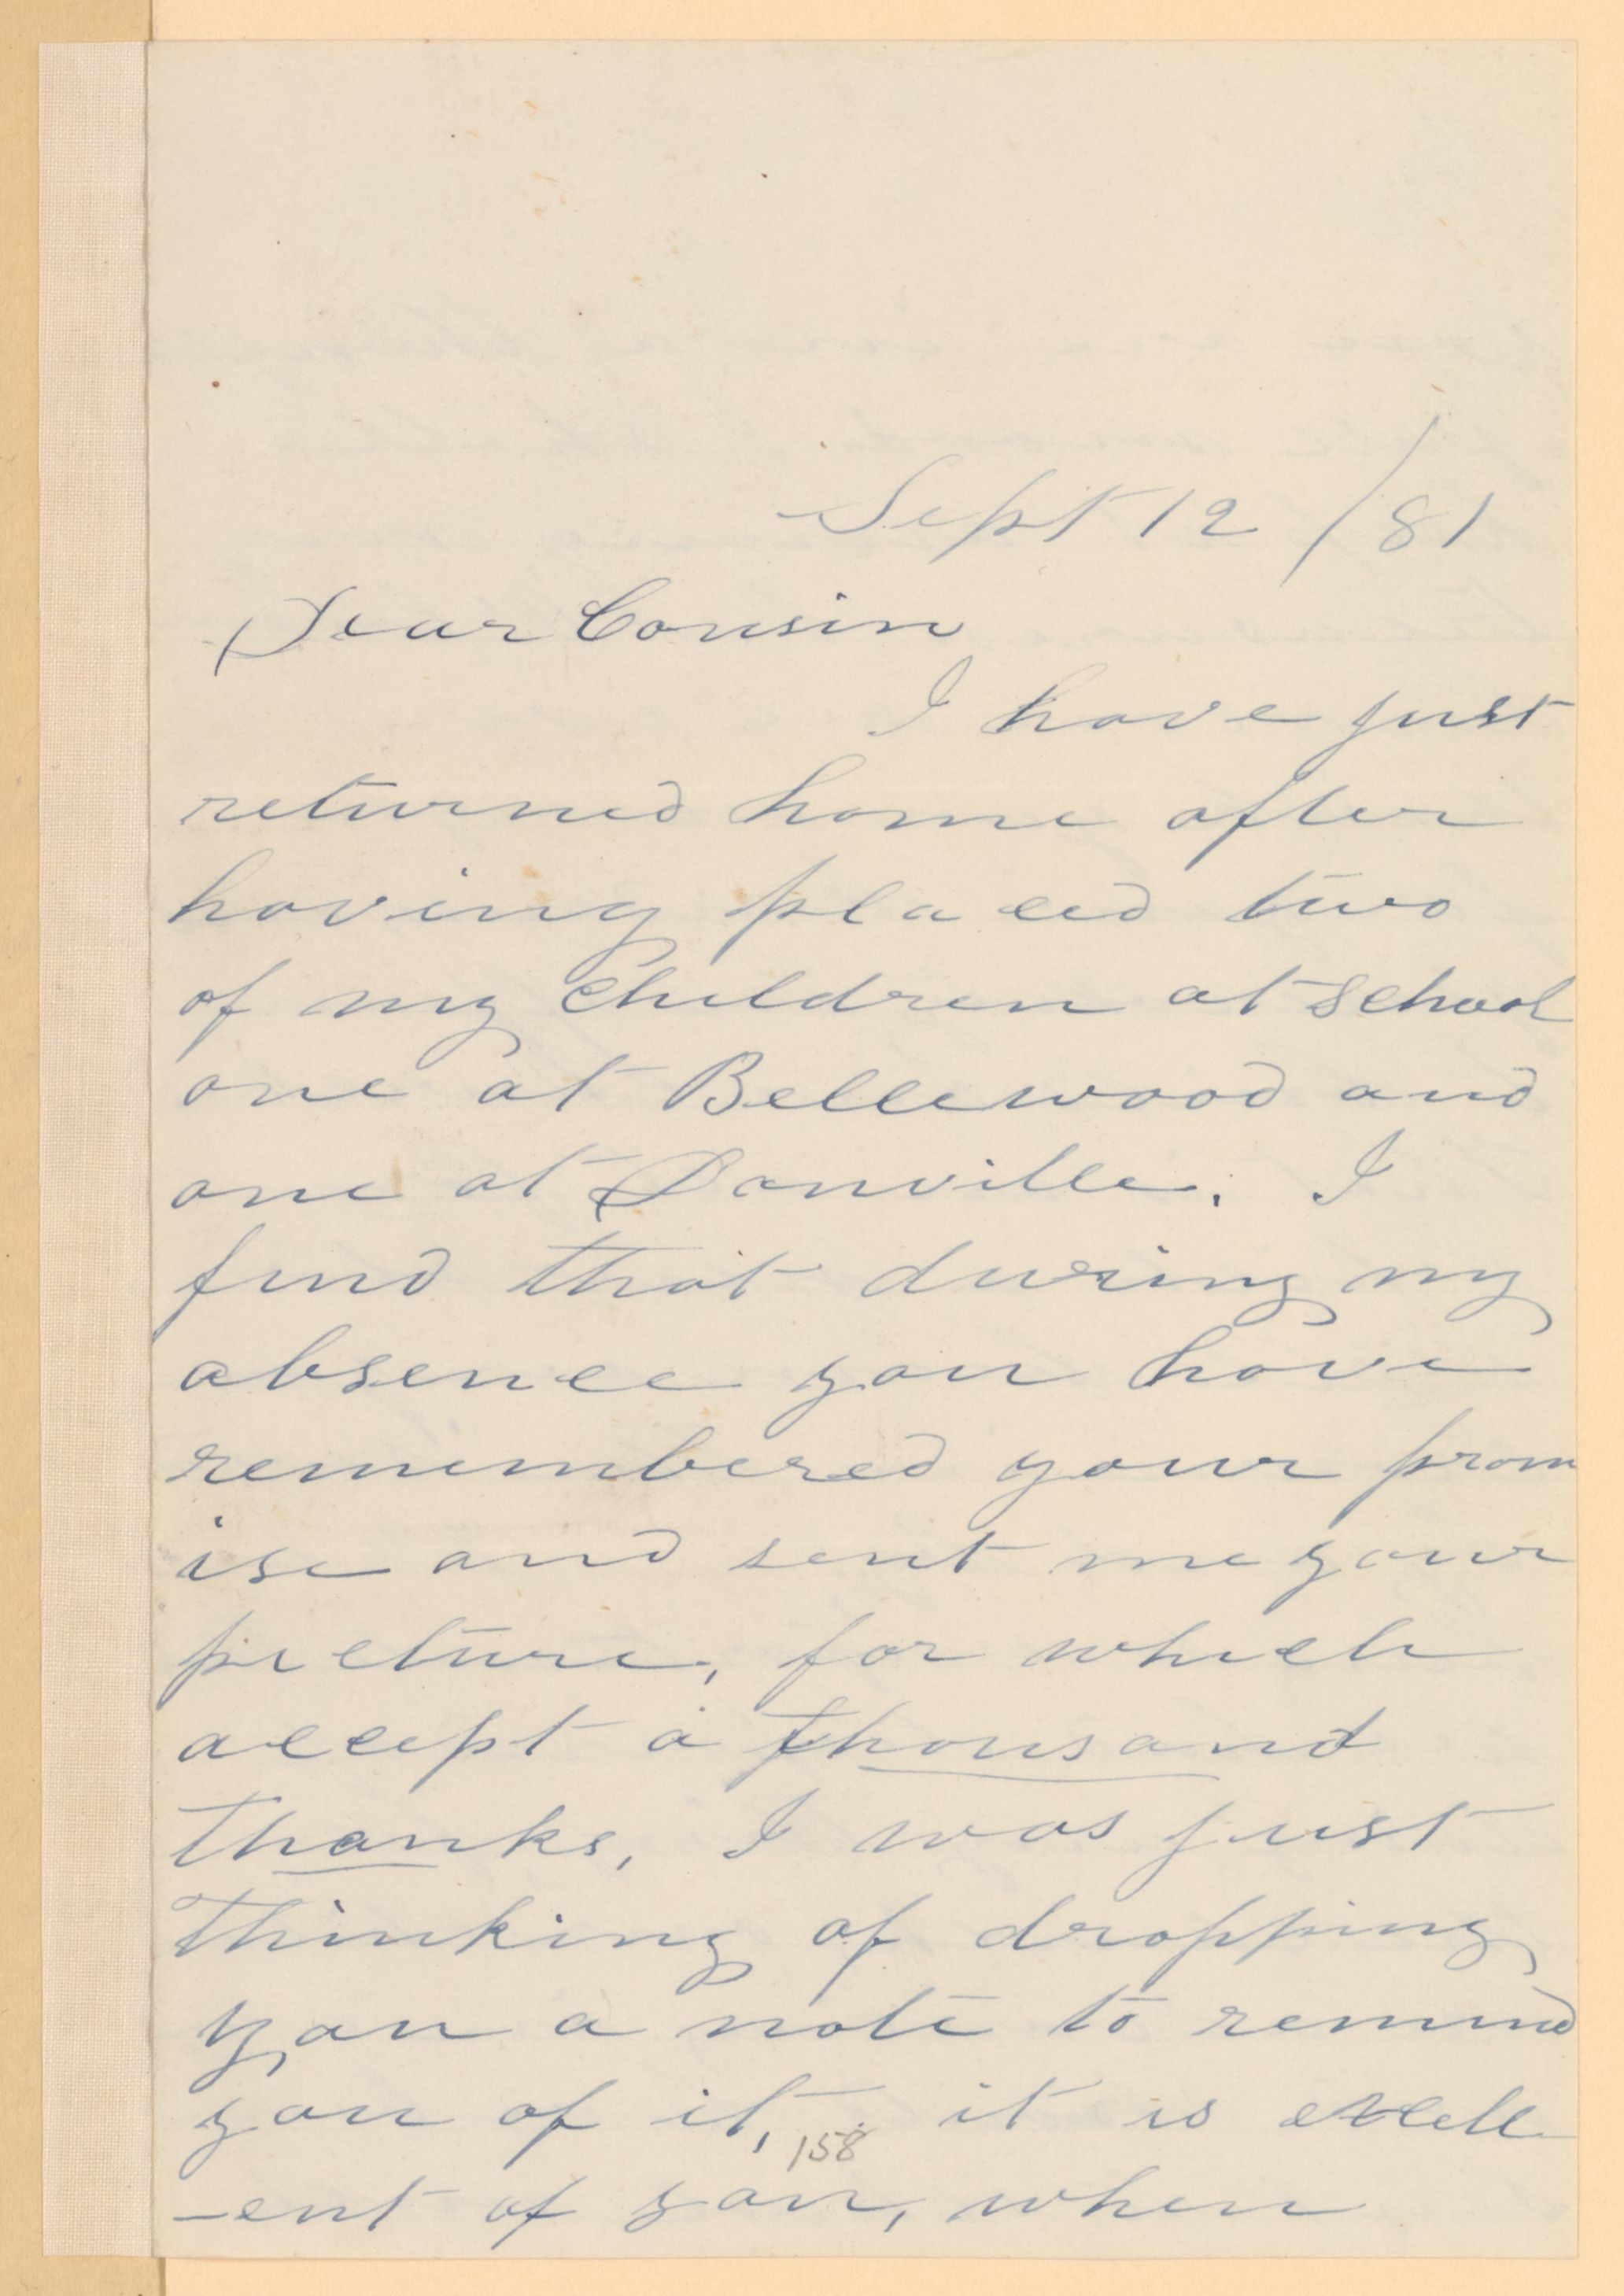 Sept 12 /81
Dear Cousin
I have just
returned home after
having placed two
of my children at school
one at Bellewood and
one at Danville. I
find that during my
absence you have
remembered your prom
ise and sent me your
picture, for which
accept a thousand
thanks, I was just
thinking of dropping
you a note to remind
you of it, it is excell
158
-ent of you, when